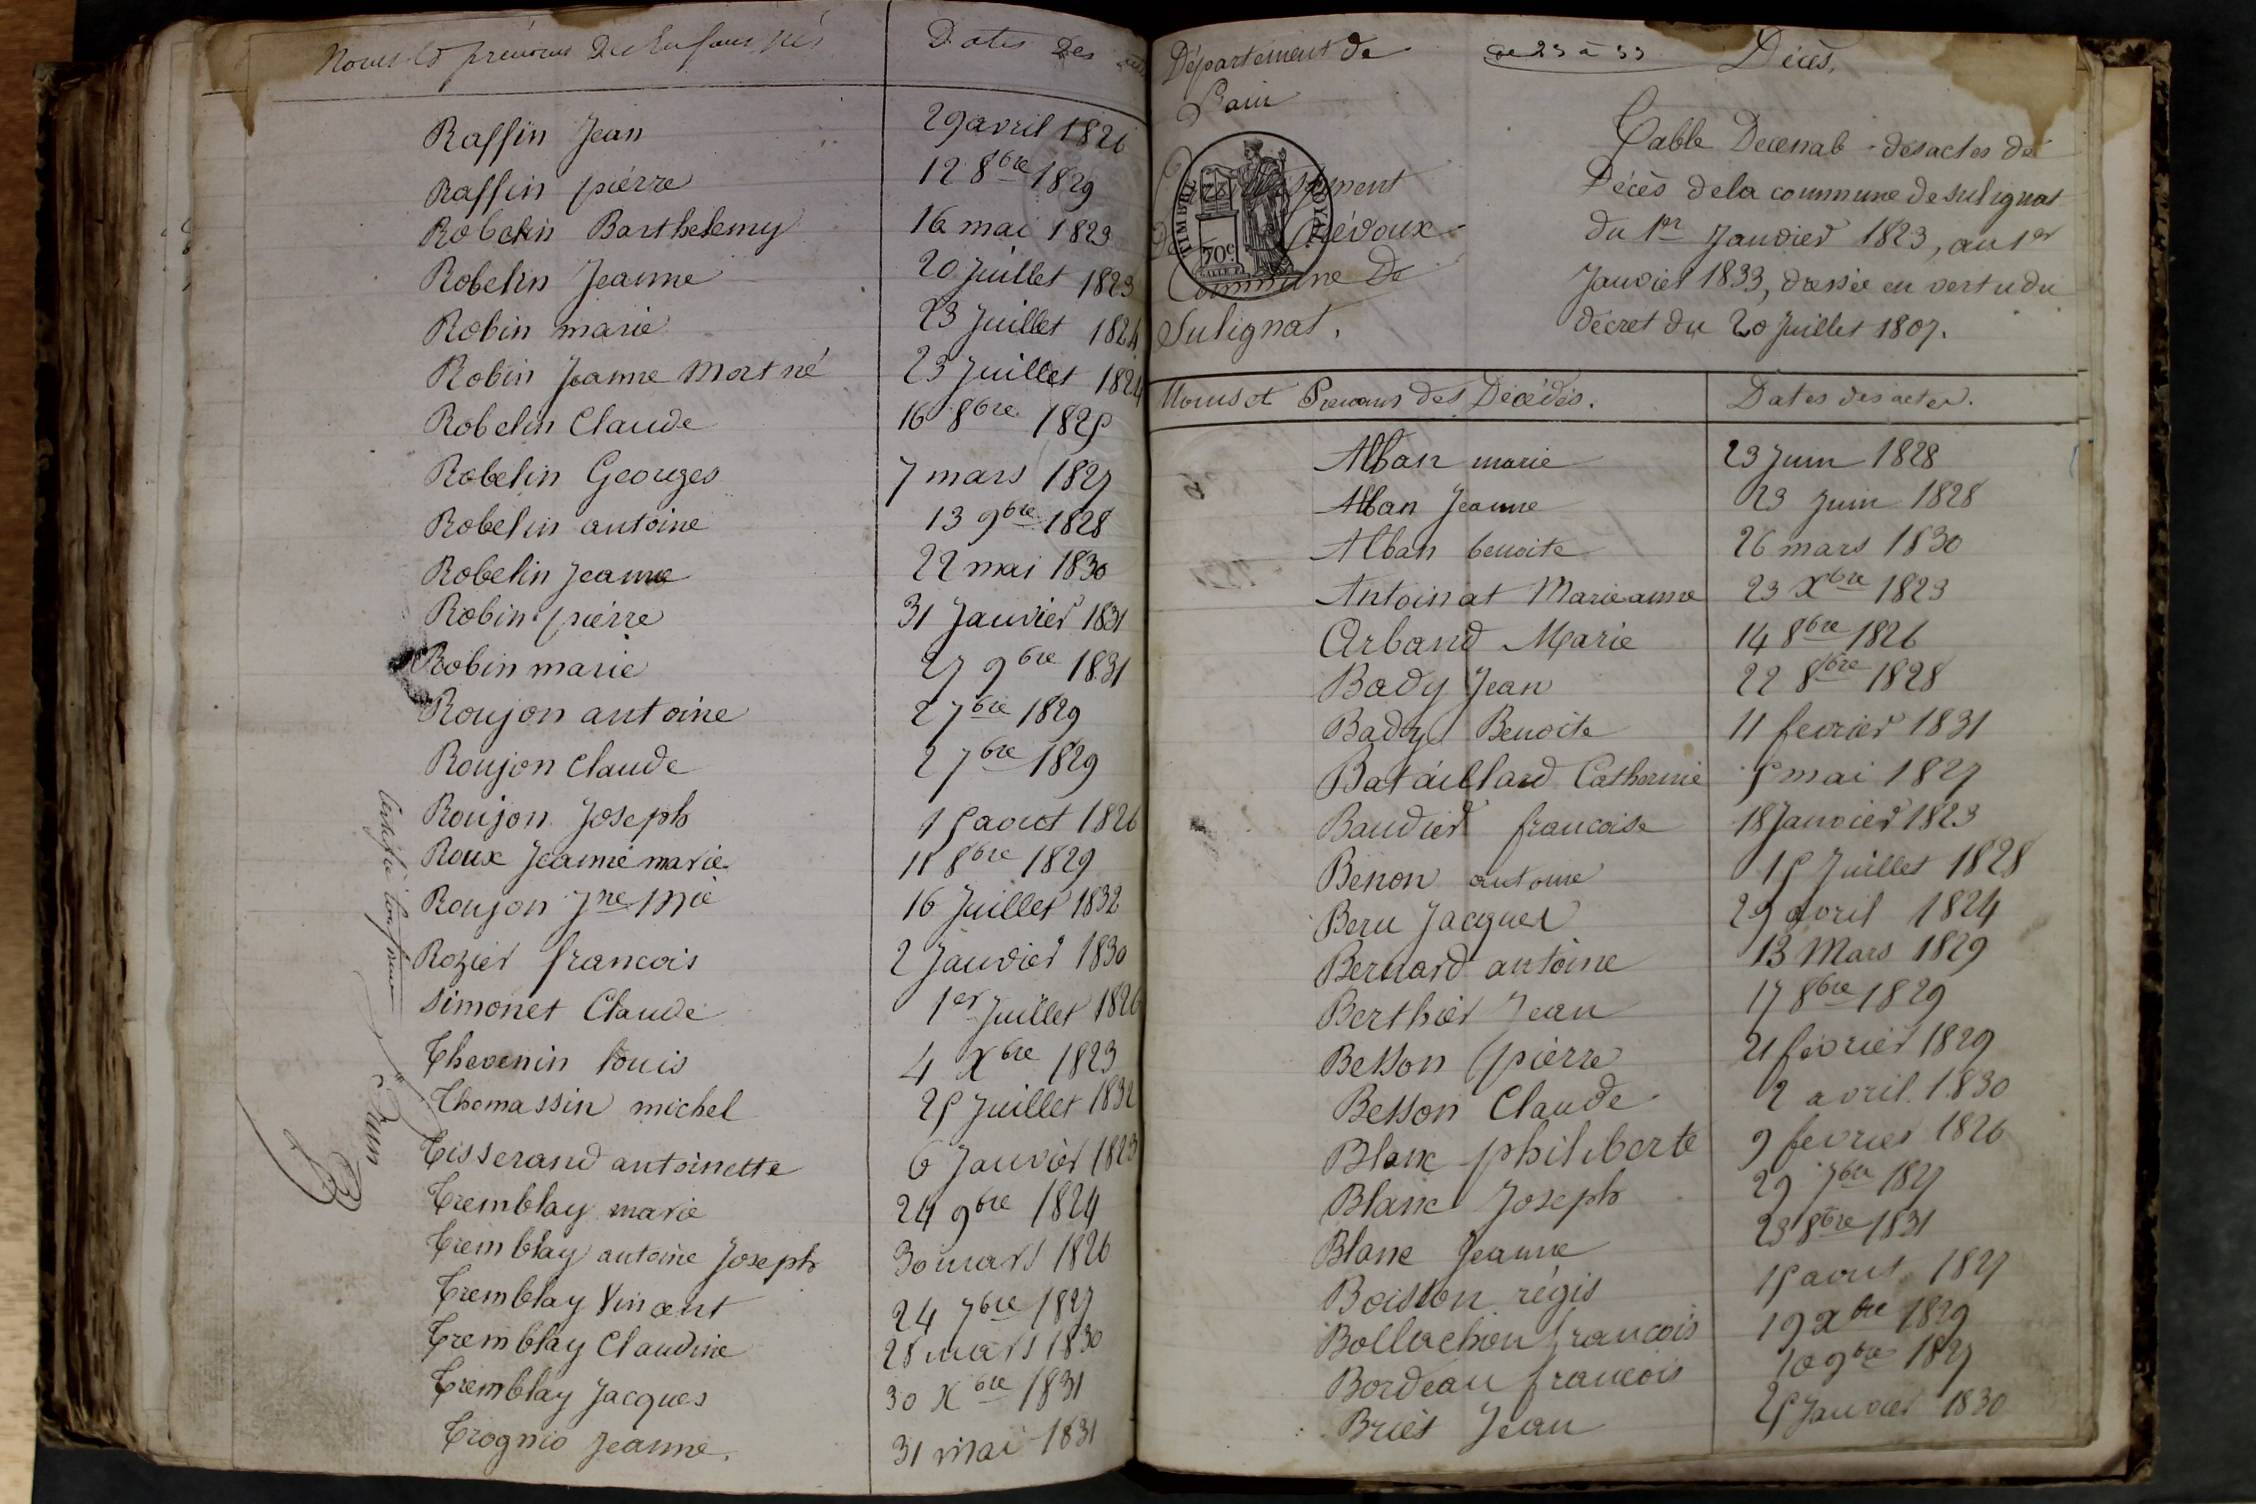 Noms et prénoms des Enfans nés Dates des
Raffin Jean 29 avril 1826
Raffin pierre 12 8bre 1829
Robelin Barthelemy 16 mai 1823
Robelin Jeanne 20 Juillet 1823
Robin marie 23 Juillet 1824
Robin Jeanne Mort né 23 Juillet 1824
Robelin Claude 16 8bre 1825
Robelin Georges 7 mars 1827
Robelin antoine 13 9bre 1828
Robelin Jeanne 22 mai 1830
Robin pierre 31 Janvier 1831
Robin marie 27 9bre 1831
Roujon antoine 2 7bre 1829
Roujon Claude 2 7bre 1829
Roujon Joseph 15 aout 1826
Roux Jeanne marie 11 8bre 1829
Roujon Jne Mie 16 Juillet 1832
Rozier francois 2 Janvier 1830
Simonet Claude 1er Juillet 1826
Thevenin louis 4 Xbre 1823
Thomassin michel 25 Juillet 1832
Tisserand antoinette 6 Janvier 1823
Tremblay marie 24 9bre 1824
Tremblay antoine Joseph 30 mars 1826
Tremblay Vincent 24 7bre 1827
Tremblay Claudine 28 mars 1830
Tremblay Jacques 30 Xbre 1831
Trognio Jeanne. 31 mai 1831
Département de
L'ain
TIMBRE ROYAL
70c
Trévoux
Commune De
Sulignat.
de 23 à 33 Décès.
Table Decenale des actes de
Décès de la commune de sulignat
du 1er Janvier 1823, au 1er
Janvier 1833, dressée en vertu du
décret du 20 Juillet 1807.
Noms et Prenoms des Décédés. Dates des actes.
Alban marie 23 Juin 1828
Alban Jeanne 23 Juin 1828
Alban benoite 26 mars 1830
Antoinat Marie anne 23 Xbre 1823
Arband Marie 14 8bre 1826
Bady Jean 22 8bre 1828
Bady Benoite 11 fevrier 1831
Bataillard Catherine 5 mai 1827
Baudier francoise 18 Janvier 1823
Benon antoine 15 Juillet 1828
Beru Jacques 29 avril 1824
Bernard antoine 13 Mars 1829
Berthier Jean 17 8bre 1829
Besson pierre 21 fevrier 1829
Besson Claude 2 avril 1830
Blanc philiberte 9 fevrier 1826
Blanc Joseph 29 7bre 1827
Blanc Jeanne 23 8bre 1831
Boisson régis 15 aout 1827
Bollachon francois 19 Xbre 1829
Bordeau francois 10 9bre 1827
Briet Jean 25 Janvier 1830